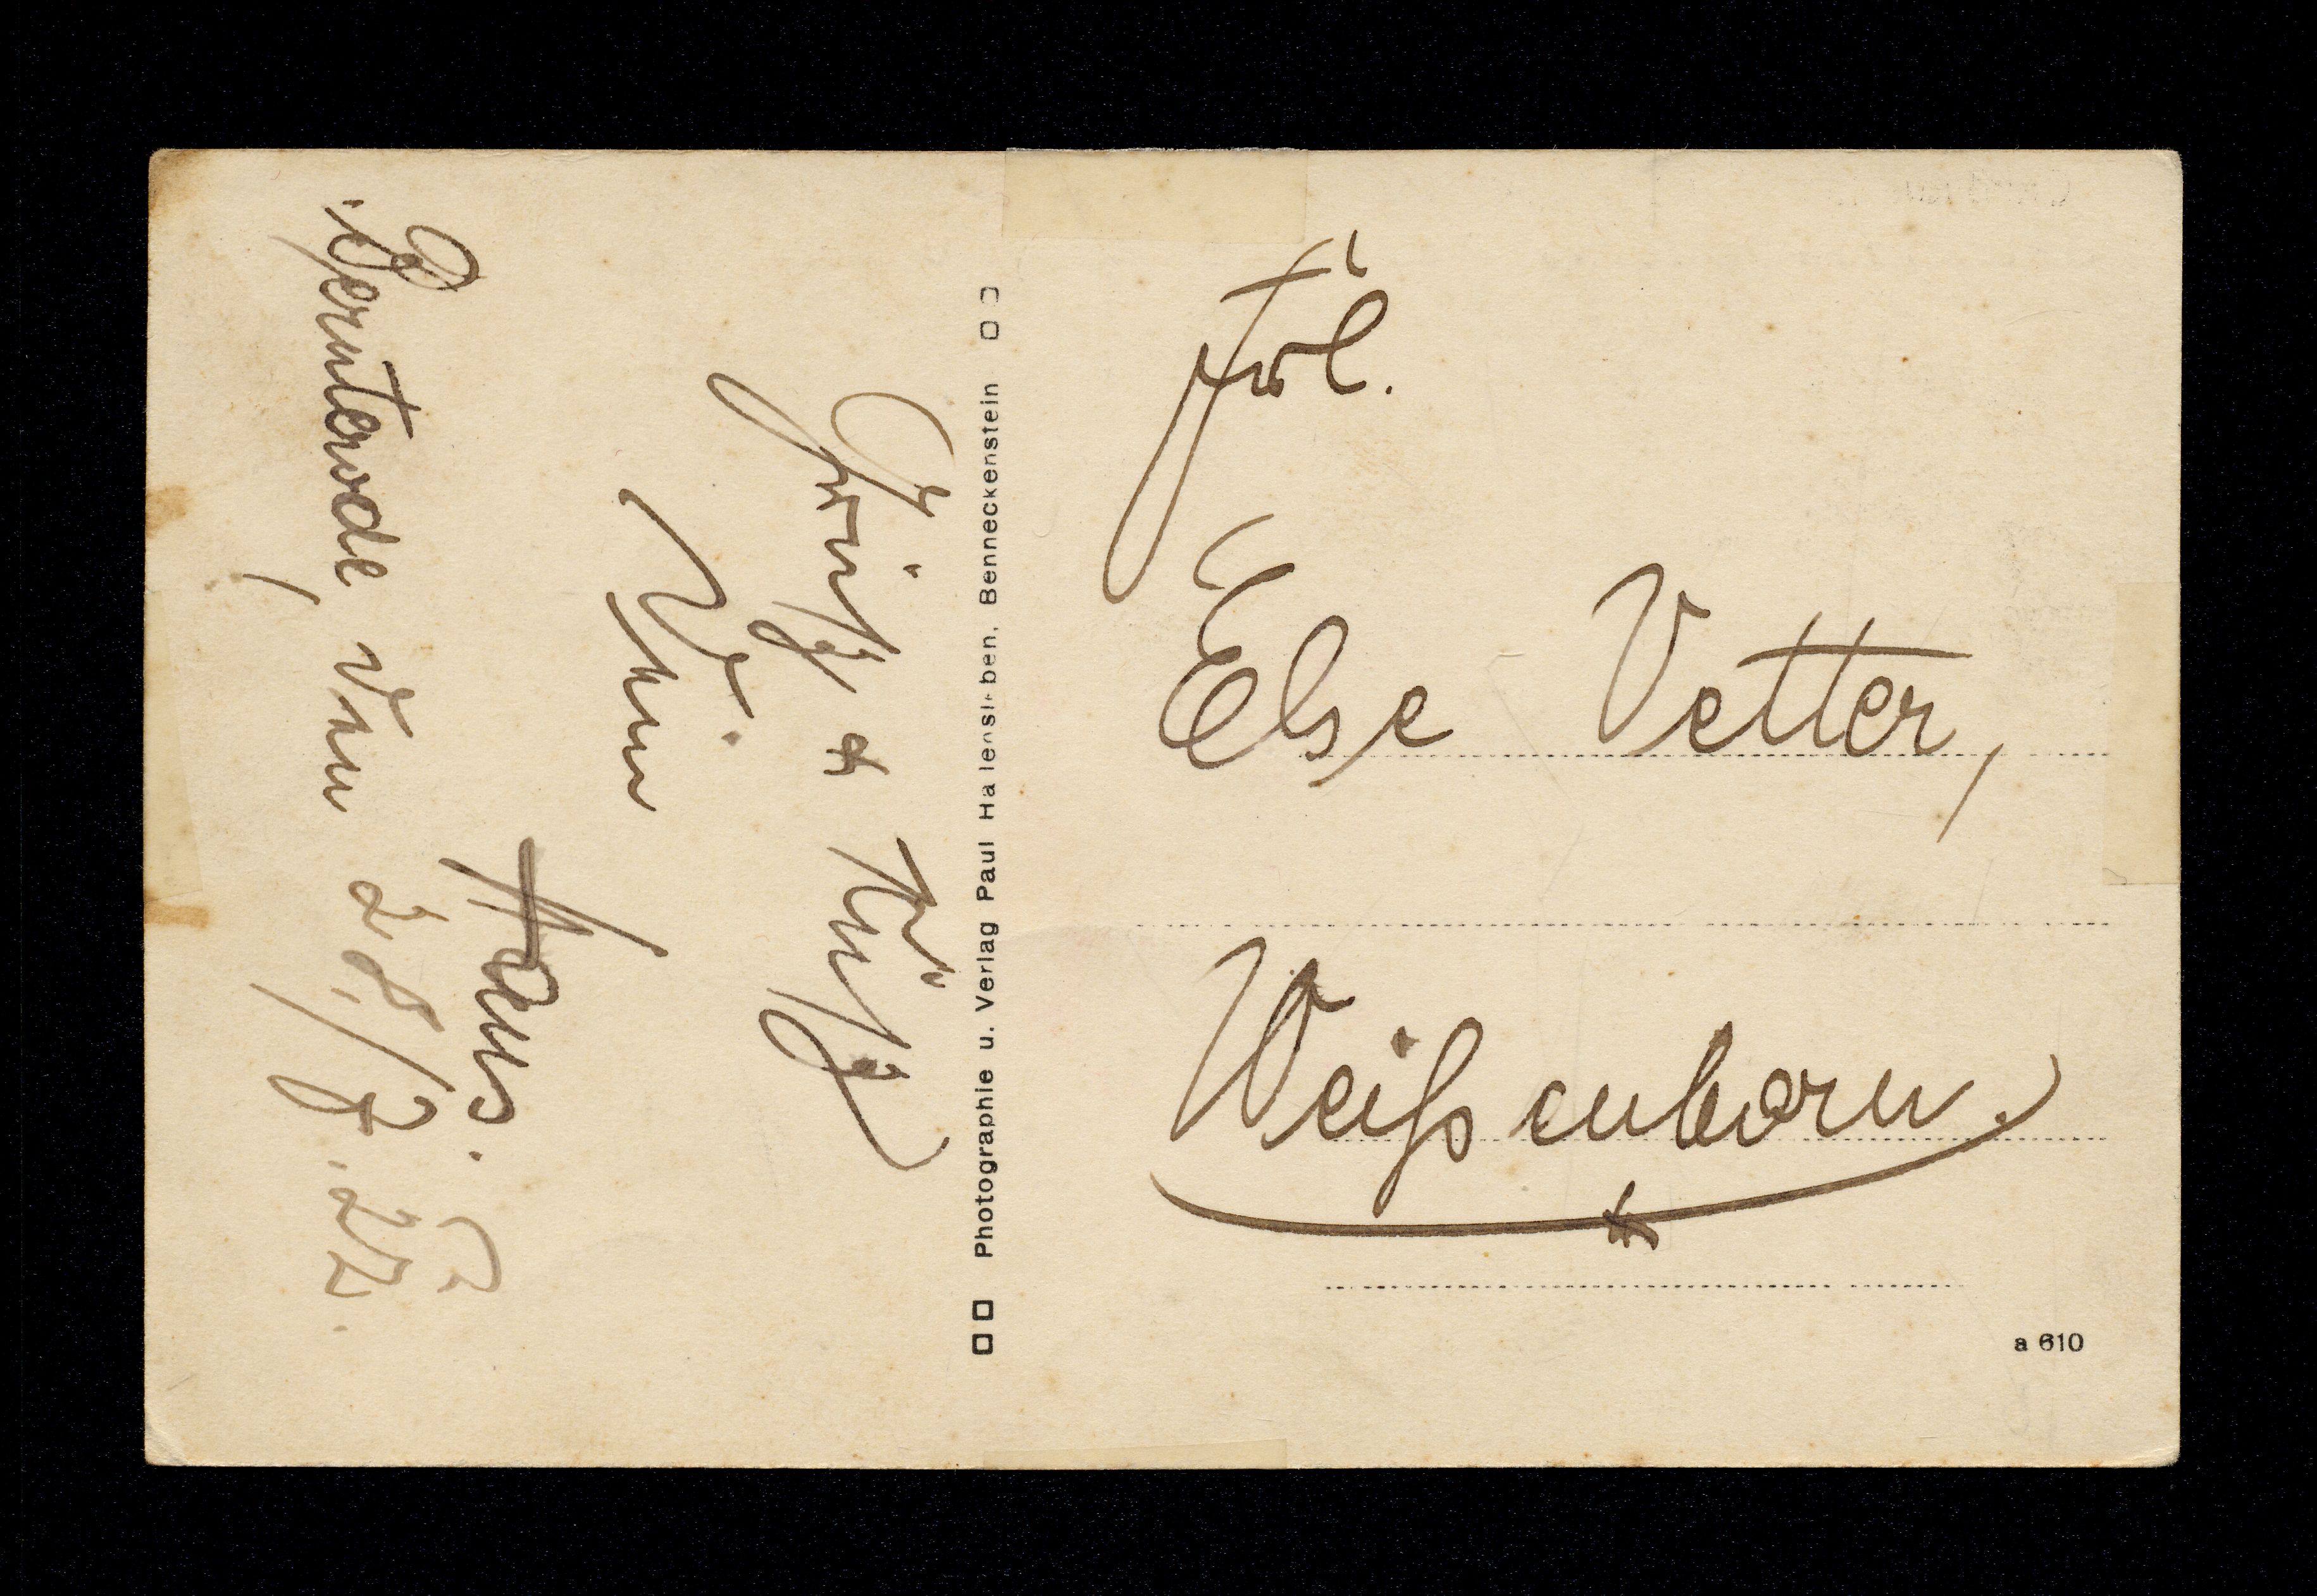 Gruß & Kuß
Dein
Hans.
Bernterode, den 28/7. 22.
Photographie u. Verlag Paul Halensleben, Benneckenstein
Frl.
Else Vetter,
Weißenborn.
a 610